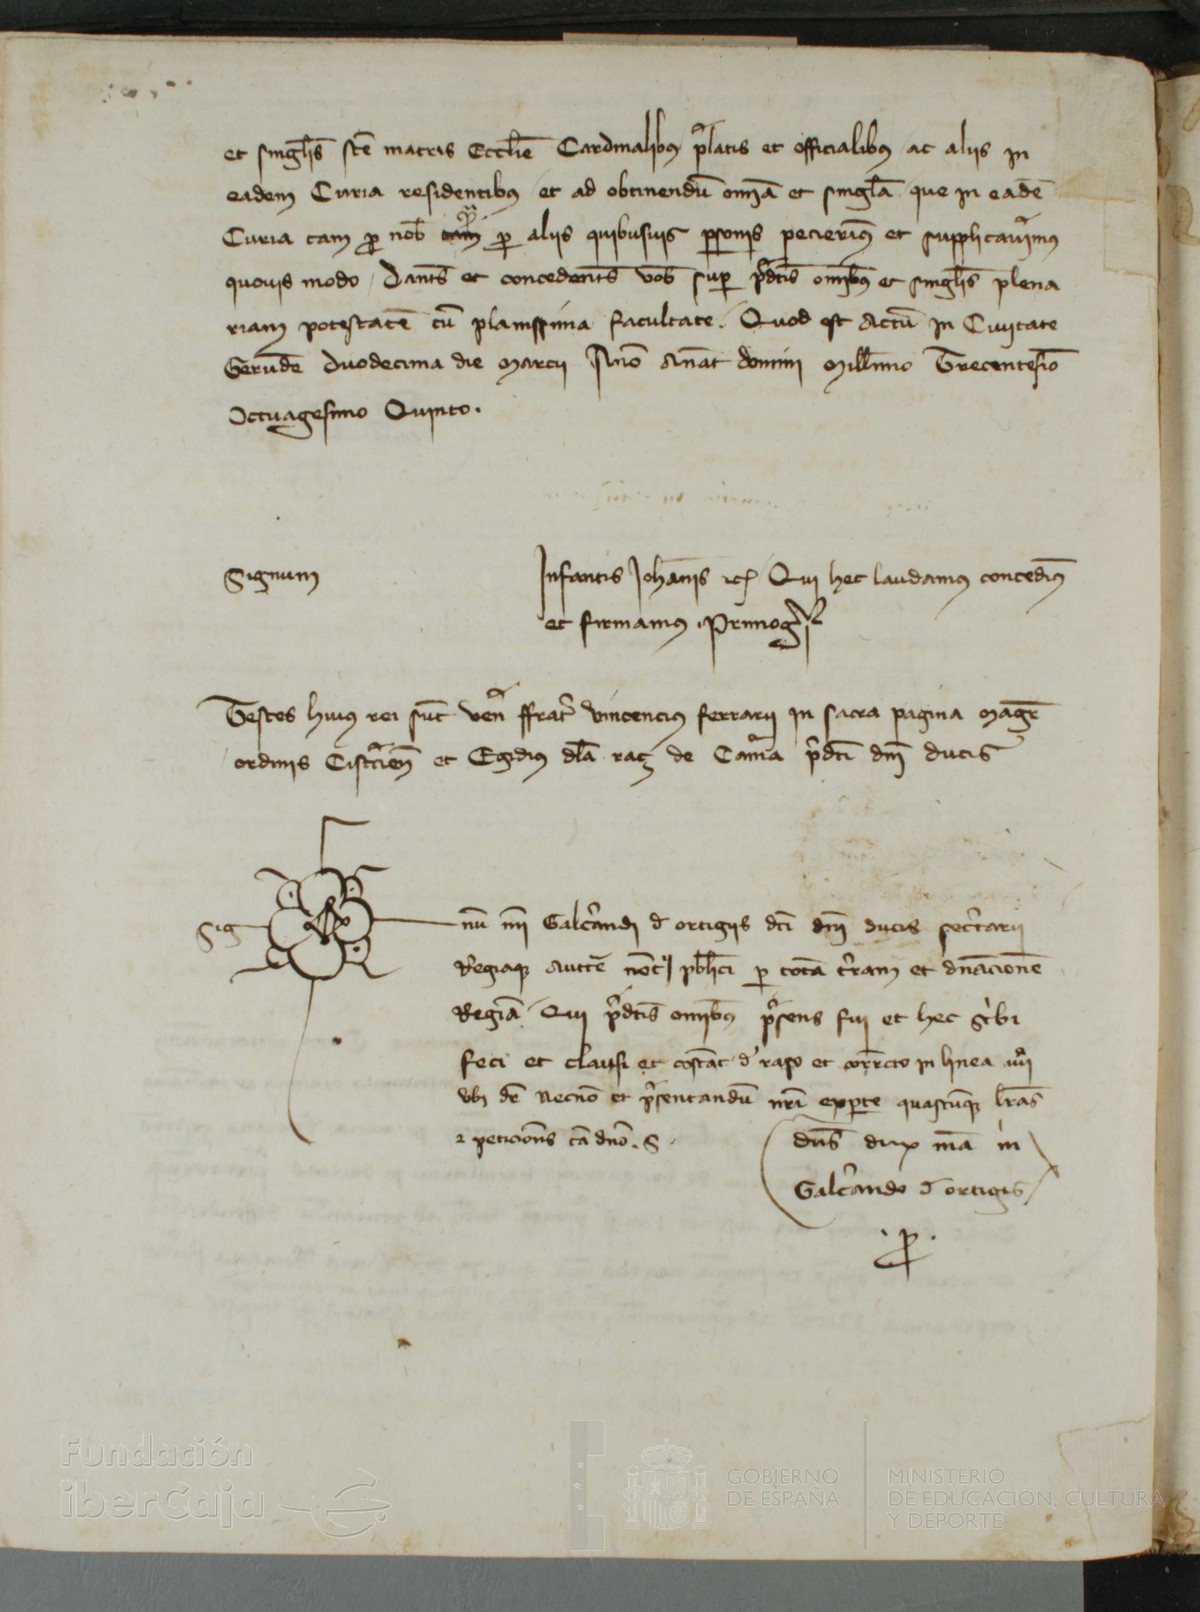 et singl̄is sc̄e matris Eccl̄ie Cardinalibus p̄latis et officialibus ac aliis in
eadem Curia residentibus et ad obtinendū om̄ia et singl̄a que in eadē
Curia tam pro nob̄ quam per aliis quibusuis personis pecierimus et supplicauimus
quouis modo Dantes et concedentes vob̄ super p̄dictis om̄ibus et singl̄is plena
riam potestatē cū plenissima facultate. Quod est Actū in Ciuitate
Gerunde Duodecima die Marcii Ano Anat domini Mill̄imo Trecentesīo
Octuagesimo Quinto.
Signum
Infantis Joh̄anis etc Qui hec laudamus concedimus
et firmamus Primogti
Testes huius rei sūt ven̄ ffrater Vincencius Ferrarii in sacra pagina Magr̄
ordinis Cistercien̄ et Egidius de Cam̄a p̄dc̄i dn̄i ducis
Sig
nū mī Galcerandi d ortigiis dc̄i dn̄i ducis secretarii
Regiaque Auctē not pb̄lici per totā t̄ram et dn̄acionē
Regiā Qui p̄dictis om̄ibus p̄sens fui et hec sc̄bi
feci et clausi et constat d raso et correcto in linea iiii
vbi dr̄ Necnō et p̄sentandū nr̄i exparte quascūque lr̄as
2 peticiōes S.
Dn̄s dux mā m
Galcerando d ortigis
P
Fundación
iberCaja
GOBIERNO
DE ESPAÑA
MINISTERIO
DE EDUCACIÓN, CULTURA
Y DEPORTE